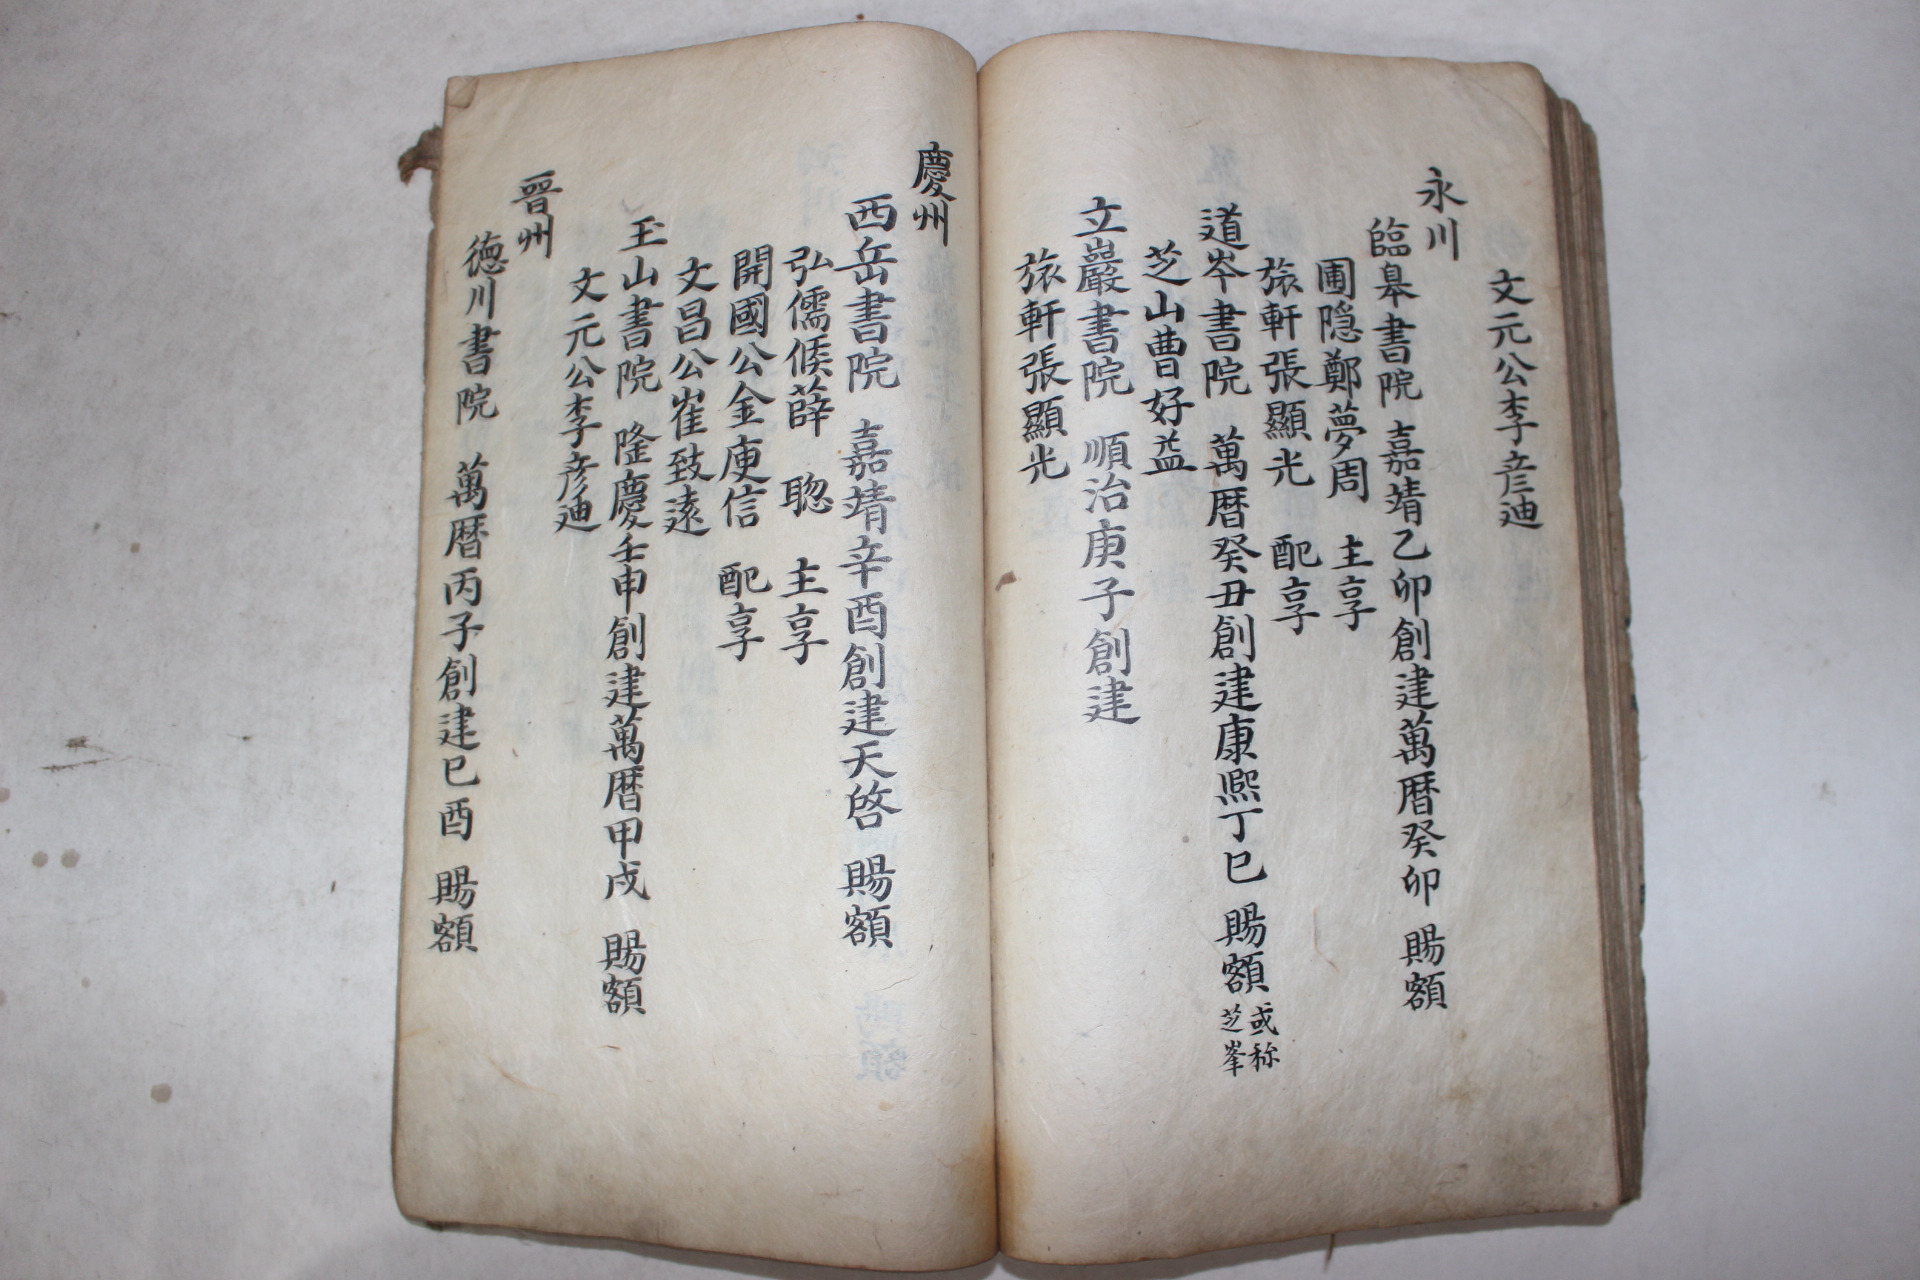 文元公李彦迪
永川
臨皐書院 嘉靖乙卯創建萬曆癸卯 賜額
圃隠鄭夢周 主享
旅軒張顯光 配享
道岑書院 萬曆癸丑創建康熙丁巳 賜額 或称芝峯
芝山曹好益
立巖書院 順治庚子創建
旅軒張顯光
慶州
西岳書院 嘉靖辛酉創建天啓 賜額
弘儒侯薛 聡 主享
開國公金庾信 配享
文昌公崔致遠
玉山書院 隆慶壬申創建萬曆甲戌 賜額
文元公李彦迪
晉州
德川書院 萬曆丙子創建己酉 賜額